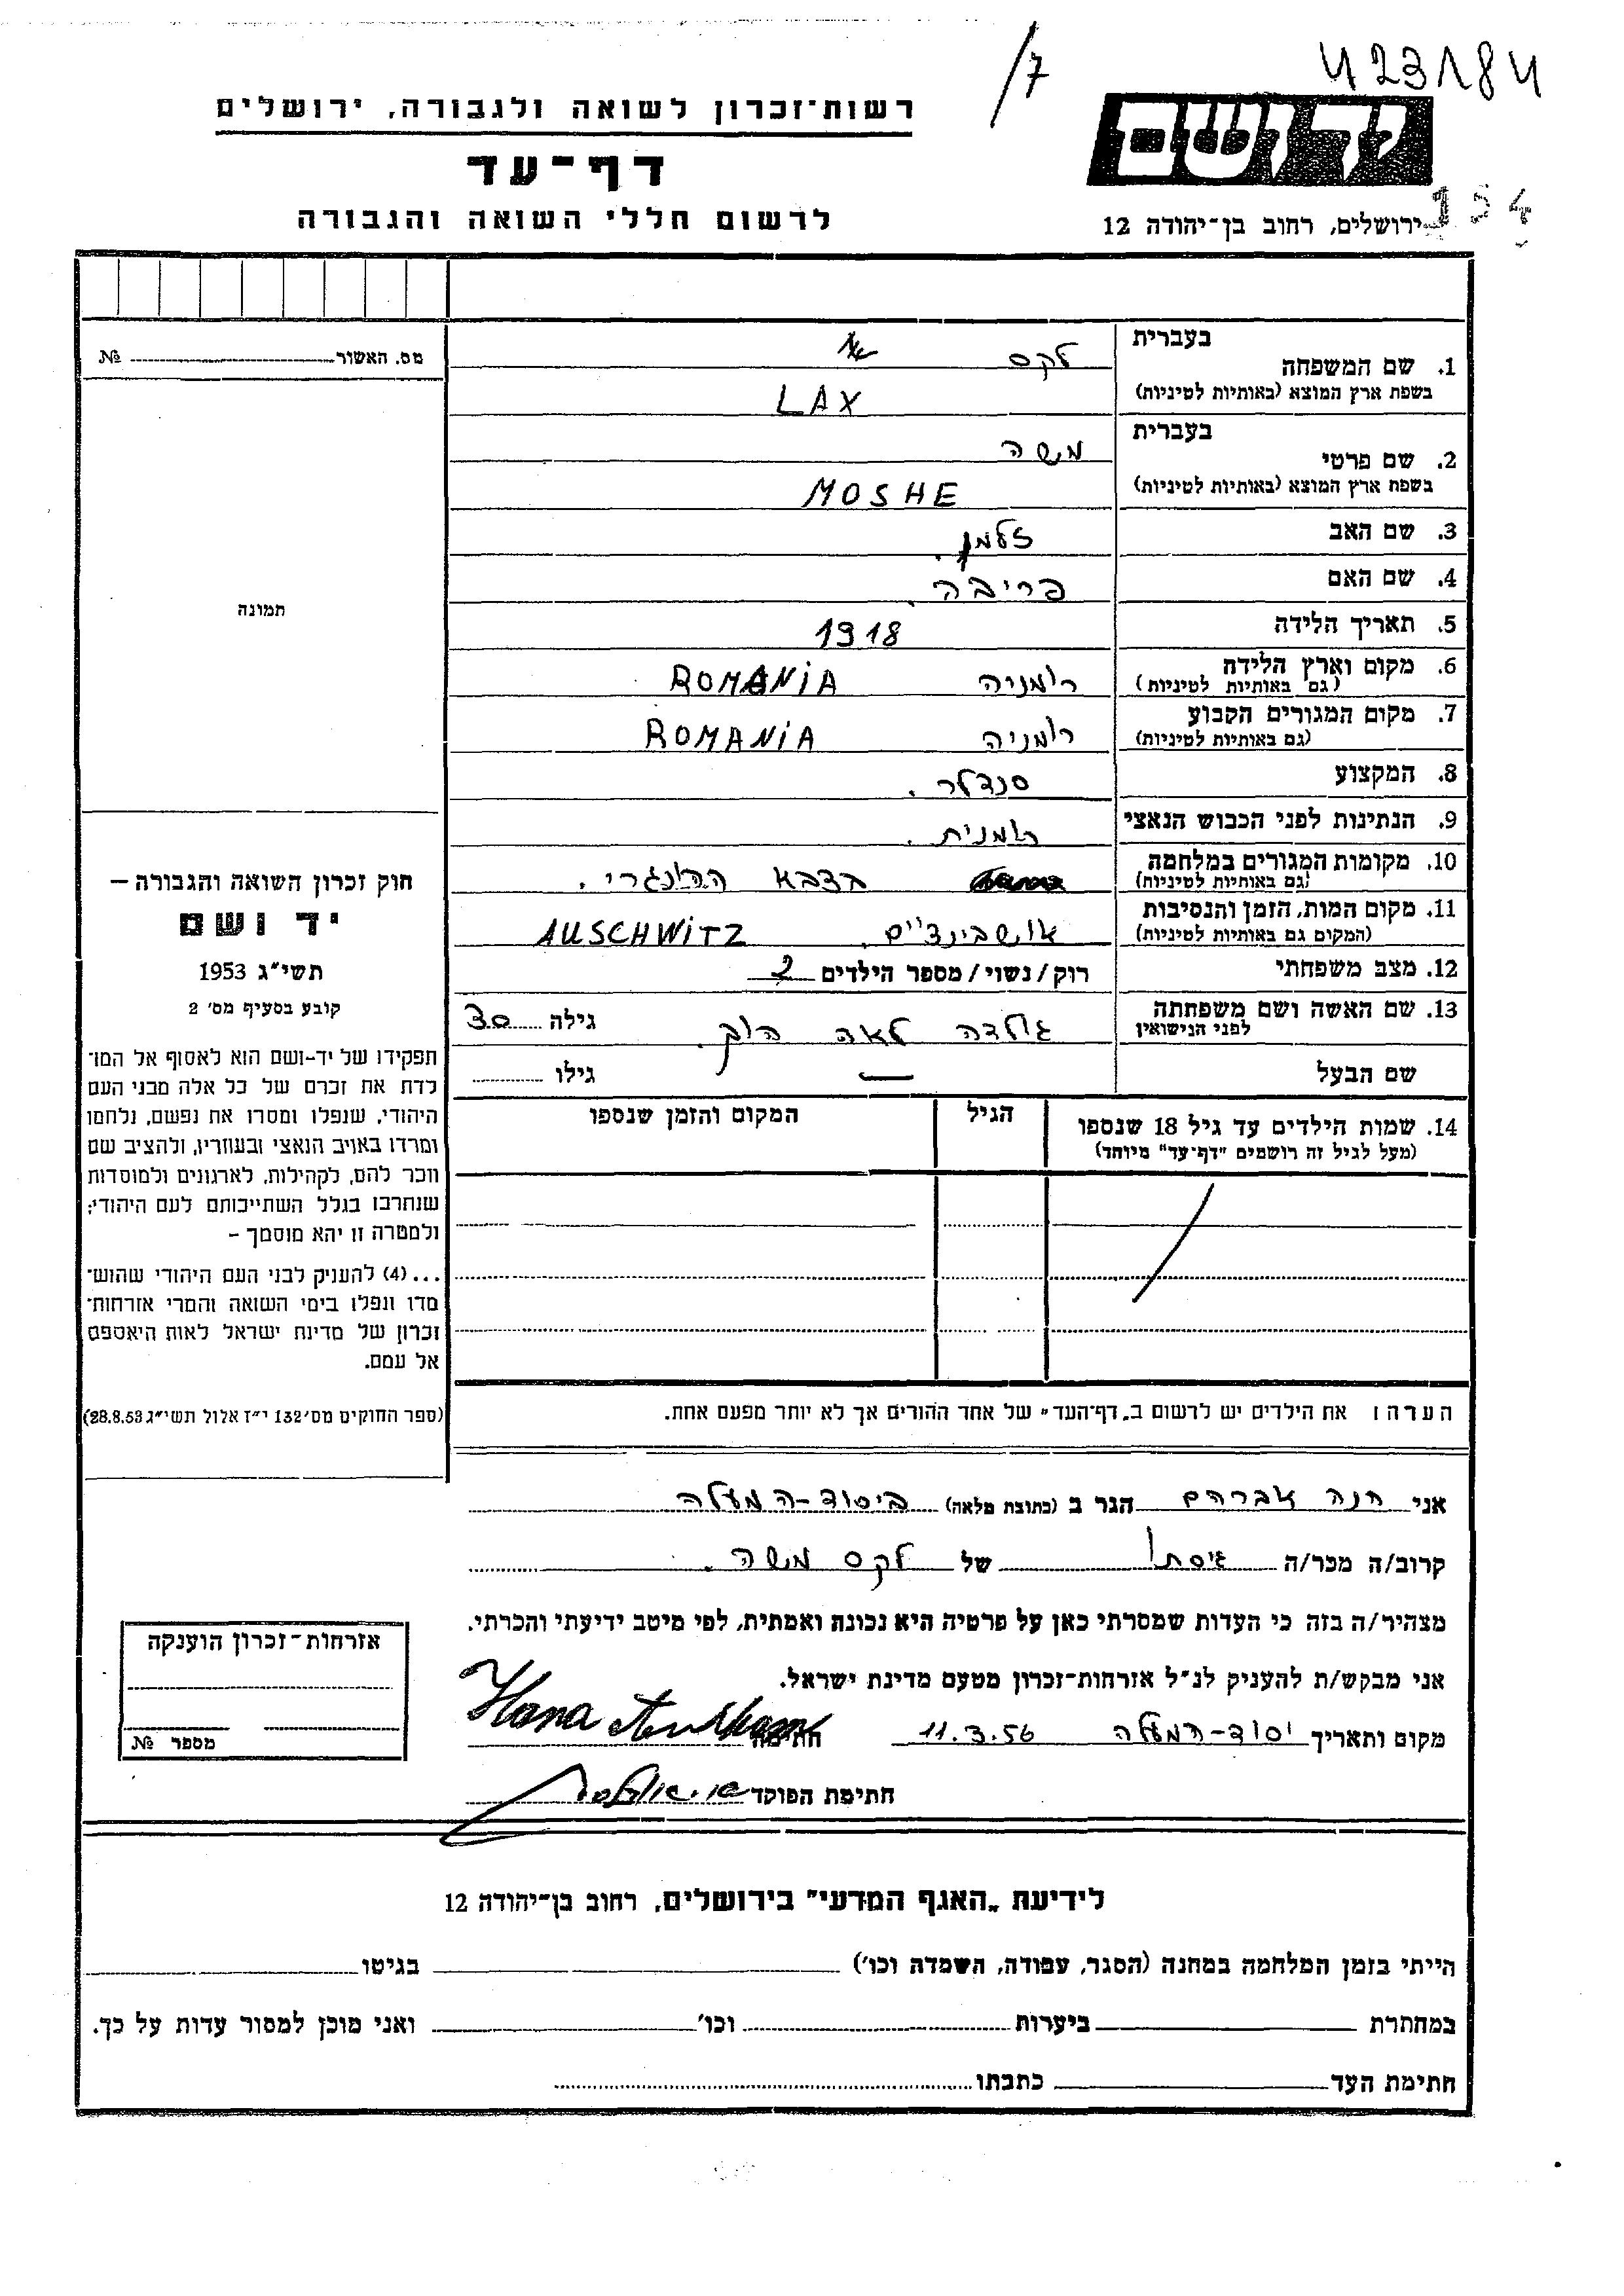 /7
423184
רשות־זכרון לשואה ולגבורה, ירושלים
דף־עד
לרשום חללי השואה והגבורה
יד ושם
ירושלים, רחוב בן־יהודה 12
154
מס. האשור № 
תמונה
חוק זכרון השואה והגבורה —
יד ושם
תשי״ג 1953
קובע בסעיף מס׳ 2
תפקידו של יד-ושם הוא לאסוף אל המו־
לדת את זכרם של כל אלה מבני העם
היהודי, שנפלו ומסרו את נפשם, נלחמו
ומרדו באויב הנאצי ובעוזריו, ולהציב שם
וזכר להם, לקהילות, לארגונים ולמוסדות
שנחרבו בגלל השתייכותם לעם היהודי;
ולמטרה זו יהא מוסמך –
...(4) להעניק לבני העם היהודי שהוש־
מדו ונפלו בימי השואה והמרי אזרחות־
זכרון של מדינת ישראל לאות היאספם
אל עמם.
(ספר החוקים מס׳ 132 י״ז אלול תשי״ג 28.8.53)
בעברית
1. שם המשפחה לקס
בשפת ארץ המוצא (באותיות לטיניות) LAX
בעברית
2. שם פרטי משה
בשפת ארץ המוצא (באותיות לטיניות) MOSHE
3. שם האב זלמן.
4. שם האם פריבה.
5. תאריך הלידה 1918
6. מקום וארץ הלידה רומניה ROMANIA
(גם באותיות לטיניות)
7. מקום המגורים הקבוע רומניה ROMANIA
(גם באותיות לטיניות)
8. המקצוע סנדלר.
9. הנתינות לפני הכבוש הנאצי רומנית.
10. מקומות המגורים במלחמה בצבא ההונגרי.
(גם באותיות לטיניות)
11. מקום המות, הזמן והנסיבות אושבינצ׳ים. AUSCHWITZ
(המקום גם באותיות לטיניות)
12. מצב משפחתי רוק/נשוי/מספר הילדים 2
13. שם האשה ושם משפחתה גולדה לאה הוק. גילה 30
לפני הנישואין
שם הבעל — גילו
14. שמות הילדים עד גיל 18 שנספו הגיל המקום והזמן שנספו
(מעל לגיל זה רושמים ״דף־עד״ מיוחד)
הערה: את הילדים יש לרשום ב„דף־העד״ של אחד ההורים אך לא יותר מפעם אחת.
אני חנה אברהם הגר ב (כתובת מלאה) ביסוד-המעלה
קרוב/ה מכר/ה גיסתו של לקס משה.
מצהיר/ה בזה כי העדות שמסרתי כאן על פרטיה היא נכונה ואמתית, לפי מיטב ידיעתי והכרתי.
אני מבקש/ת להעניק לנ״ל אזרחות־זכרון מטעם מדינת ישראל.
מקום ותאריך יסוד-המעלה 11.3.56 חתימה Hana
חתימת הפוקד
אזרחות־זכרון הוענקה
מספר №
לידיעת „האגף המדעי״ בירושלים, רחוב בן־יהודה 12
הייתי בזמן המלחמה במחנה (הסגר, עבודה, השמדה וכו׳) בגיטו
במחתרת ביערות וכו׳ ואני מוכן למסור עדות על כך.
חתימת העד כתבתו